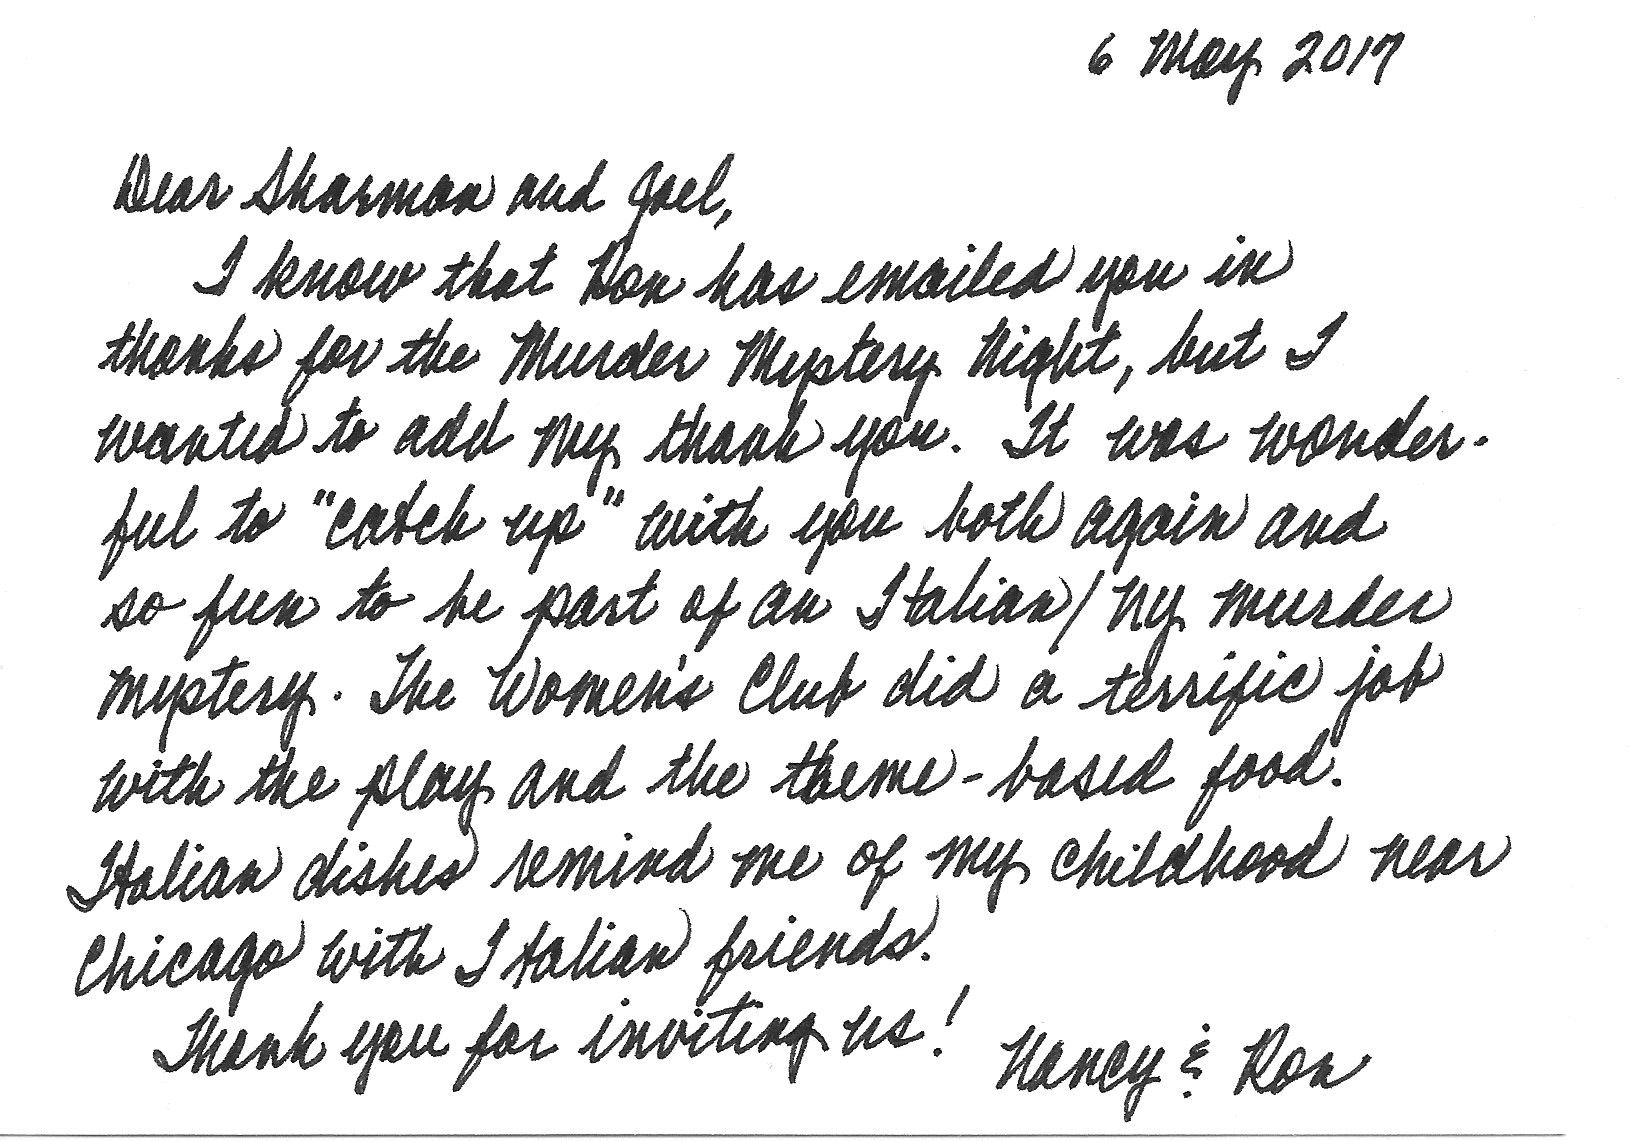 6 May 2017
Dear Sharman and Joel,
I know that Ron has emailed you in
thanks for the Murder Mystery Night, but I
wanted to add my thank you. It was wonder-
ful to "catch up" with you both again and
so fun to be part of an Italian/NY murder
mystery. The Women's Club did a terrific job
with the play and the theme-based food.
Italian dishes remind me of my childhood near
Chicago with Italian friends.
Thank you for inviting us!
Nancy & Ron